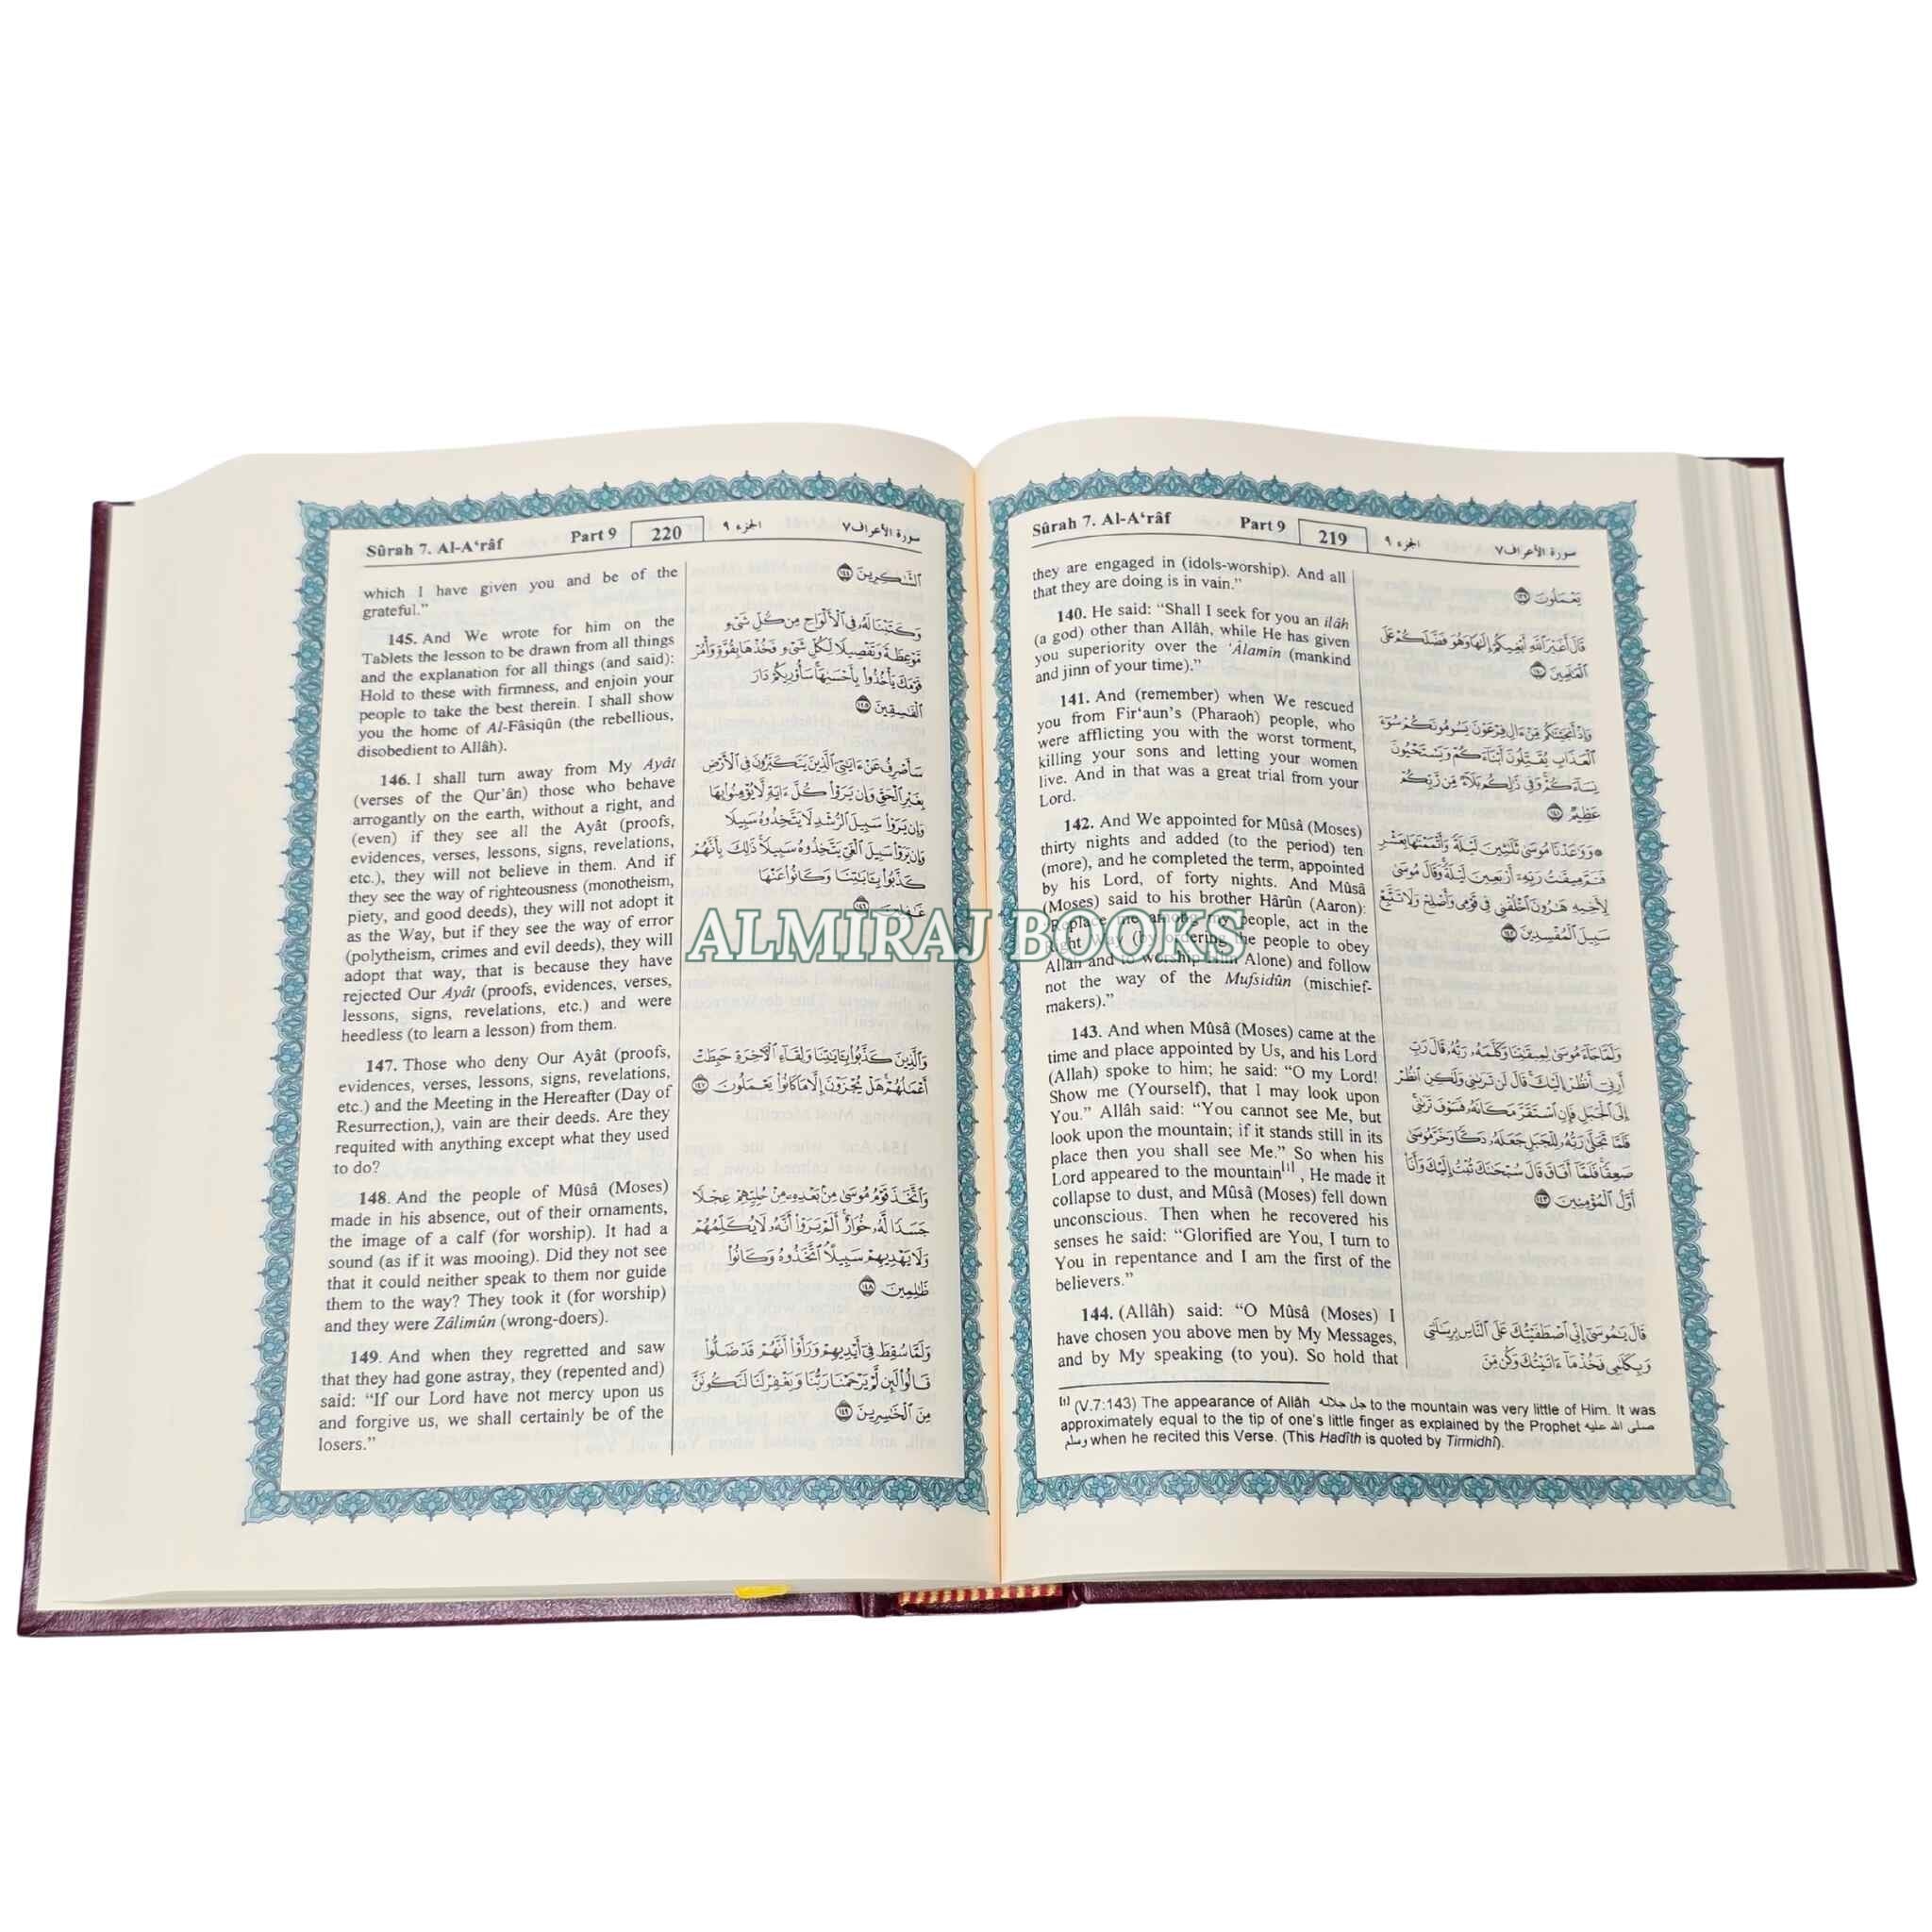 Sûrah 7. Al-A‘râf Part 9 219 الجزء ٩ سورة الأعراف ٧
they are engaged in (idols-worship). And all
that they are doing is in vain.”
140. He said: “Shall I seek for you an ilâh
(a god) other than Allâh, while He has given
you superiority over the ‘Âlamîn (mankind
and jinn of your time).”
141. And (remember) when We rescued
you from Fir‘aun’s (Pharaoh) people, who
were afflicting you with the worst torment,
killing your sons and letting your women
live. And in that was a great trial from your
Lord.
142. And We appointed for Mûsâ (Moses)
thirty nights and added (to the period) ten
(more), and he completed the term, appointed
by his Lord, of forty nights. And Mûsâ
(Moses) said to his brother Hârûn (Aaron):
“Replace me among my people, act in the
Right Way (by ordering the people to obey
Allâh and to worship Him Alone) and follow
not the way of the Mufsidûn (mischief-
makers).”
143. And when Mûsâ (Moses) came at the
time and place appointed by Us, and his Lord
(Allah) spoke to him; he said: “O my Lord!
Show me (Yourself), that I may look upon
You.” Allâh said: “You cannot see Me, but
look upon the mountain; if it stands still in its
place then you shall see Me.” So when his
Lord appeared to the mountain[1] , He made it
collapse to dust, and Mûsâ (Moses) fell down
unconscious. Then when he recovered his
senses he said: “Glorified are You, I turn to
You in repentance and I am the first of the
believers.”
144. (Allâh) said: “O Mûsâ (Moses) I
have chosen you above men by My Messages,
and by My speaking (to you). So hold that
يَعْمَلُونَ ١٣٩
قَالَ أَغَيْرَ ٱللَّهِ أَبْغِيكُمْ إِلَٰهًا وَهُوَ فَضَّلَكُمْ عَلَى
ٱلْعَٰلَمِينَ ١٤٠
وَإِذْ أَنجَيْنَٰكُم مِّنْ ءَالِ فِرْعَوْنَ يَسُومُونَكُمْ سُوٓءَ
ٱلْعَذَابِ يُقَتِّلُونَ أَبْنَآءَكُمْ وَيَسْتَحْيُونَ
نِسَآءَكُمْ وَفِى ذَٰلِكُم بَلَآءٌ مِّن رَّبِّكُمْ
عَظِيمٌ ١٤١
۞ وَوَٰعَدْنَا مُوسَىٰ ثَلَٰثِينَ لَيْلَةً وَأَتْمَمْنَٰهَا بِعَشْرٍ
فَتَمَّ مِيقَٰتُ رَبِّهِۦٓ أَرْبَعِينَ لَيْلَةً وَقَالَ مُوسَىٰ
لِأَخِيهِ هَٰرُونَ ٱخْلُفْنِى فِى قَوْمِى وَأَصْلِحْ وَلَا تَتَّبِعْ
سَبِيلَ ٱلْمُفْسِدِينَ ١٤٢
وَلَمَّا جَآءَ مُوسَىٰ لِمِيقَٰتِنَا وَكَلَّمَهُۥ رَبُّهُۥ قَالَ رَبِّ
أَرِنِىٓ أَنظُرْ إِلَيْكَ قَالَ لَن تَرَىٰنِى وَلَٰكِنِ ٱنظُرْ
إِلَى ٱلْجَبَلِ فَإِنِ ٱسْتَقَرَّ مَكَانَهُۥ فَسَوْفَ تَرَىٰنِى
فَلَمَّا تَجَلَّىٰ رَبُّهُۥ لِلْجَبَلِ جَعَلَهُۥ دَكًّا وَخَرَّ مُوسَىٰ
صَعِقًا فَلَمَّآ أَفَاقَ قَالَ سُبْحَٰنَكَ تُبْتُ إِلَيْكَ وَأَنَا۠
أَوَّلُ ٱلْمُؤْمِنِينَ ١٤٣
قَالَ يَٰمُوسَىٰٓ إِنِّى ٱصْطَفَيْتُكَ عَلَى ٱلنَّاسِ بِرِسَٰلَٰتِى
وَبِكَلَٰمِى فَخُذْ مَآ ءَاتَيْتُكَ وَكُن مِّنَ
[1] (V.7:143) The appearance of Allâh جل جلاله to the mountain was very little of Him. It was
approximately equal to the tip of one’s little finger as explained by the Prophet صلى الله عليه
وسلم when he recited this Verse. (This Hadîth is quoted by Tirmidhî).
Sûrah 7. Al-A‘râf Part 9 220 الجزء ٩ سورة الأعراف ٧
which I have given you and be of the
grateful.”
145. And We wrote for him on the
Tablets the lesson to be drawn from all things
and the explanation for all things (and said):
Hold to these with firmness, and enjoin your
people to take the best therein. I shall show
you the home of Al-Fâsiqûn (the rebellious,
disobedient to Allâh).
146. I shall turn away from My Ayât
(verses of the Qur’ân) those who behave
arrogantly on the earth, without a right, and
(even) if they see all the Ayât (proofs,
evidences, verses, lessons, signs, revelations,
etc.), they will not believe in them. And if
they see the way of righteousness (monotheism,
piety, and good deeds), they will not adopt it
as the Way, but if they see the way of error
(polytheism, crimes and evil deeds), they will
adopt that way, that is because they have
rejected Our Ayât (proofs, evidences, verses,
lessons, signs, revelations, etc.) and were
heedless (to learn a lesson) from them.
147. Those who deny Our Ayât (proofs,
evidences, verses, lessons, signs, revelations,
etc.) and the Meeting in the Hereafter (Day of
Resurrection,), vain are their deeds. Are they
requited with anything except what they used
to do?
148. And the people of Mûsâ (Moses)
made in his absence, out of their ornaments,
the image of a calf (for worship). It had a
sound (as if it was mooing). Did they not see
that it could neither speak to them nor guide
them to the way? They took it (for worship)
and they were Zâlimûn (wrong-doers).
149. And when they regretted and saw
that they had gone astray, they (repented and)
said: “If our Lord have not mercy upon us
and forgive us, we shall certainly be of the
losers.”
ٱلشَّٰكِرِينَ ١٤٤
وَكَتَبْنَا لَهُۥ فِى ٱلْأَلْوَاحِ مِن كُلِّ شَىْءٍ
مَّوْعِظَةً وَتَفْصِيلًا لِّكُلِّ شَىْءٍ فَخُذْهَا بِقُوَّةٍ وَأْمُرْ
قَوْمَكَ يَأْخُذُوا۟ بِأَحْسَنِهَا سَأُو۟رِيكُمْ دَارَ
ٱلْفَٰسِقِينَ ١٤٥
سَأَصْرِفُ عَنْ ءَايَٰتِىَ ٱلَّذِينَ يَتَكَبَّرُونَ فِى ٱلْأَرْضِ
بِغَيْرِ ٱلْحَقِّ وَإِن يَرَوْا۟ كُلَّ ءَايَةٍ لَّا يُؤْمِنُوا۟ بِهَا
وَإِن يَرَوْا۟ سَبِيلَ ٱلرُّشْدِ لَا يَتَّخِذُوهُ سَبِيلًا
وَإِن يَرَوْا۟ سَبِيلَ ٱلْغَىِّ يَتَّخِذُوهُ سَبِيلًا ذَٰلِكَ بِأَنَّهُمْ
كَذَّبُوا۟ بِـَٔايَٰتِنَا وَكَانُوا۟ عَنْهَا
غَٰفِلِينَ ١٤٦
وَٱلَّذِينَ كَذَّبُوا۟ بِـَٔايَٰتِنَا وَلِقَآءِ ٱلْءَاخِرَةِ حَبِطَتْ
أَعْمَٰلُهُمْ هَلْ يُجْزَوْنَ إِلَّا مَا كَانُوا۟ يَعْمَلُونَ ١٤٧
وَٱتَّخَذَ قَوْمُ مُوسَىٰ مِنۢ بَعْدِهِۦ مِنْ حُلِيِّهِمْ عِجْلًا
جَسَدًا لَّهُۥ خُوَارٌ أَلَمْ يَرَوْا۟ أَنَّهُۥ لَا يُكَلِّمُهُمْ
وَلَا يَهْدِيهِمْ سَبِيلًا ٱتَّخَذُوهُ وَكَانُوا۟
ظَٰلِمِينَ ١٤٨
وَلَمَّا سُقِطَ فِىٓ أَيْدِيهِمْ وَرَأَوْا۟ أَنَّهُمْ قَدْ ضَلُّوا۟
قَالُوا۟ لَئِن لَّمْ يَرْحَمْنَا رَبُّنَا وَيَغْفِرْ لَنَا لَنَكُونَنَّ
مِنَ ٱلْخَٰسِرِينَ ١٤٩
ALMIRAJ BOOKS